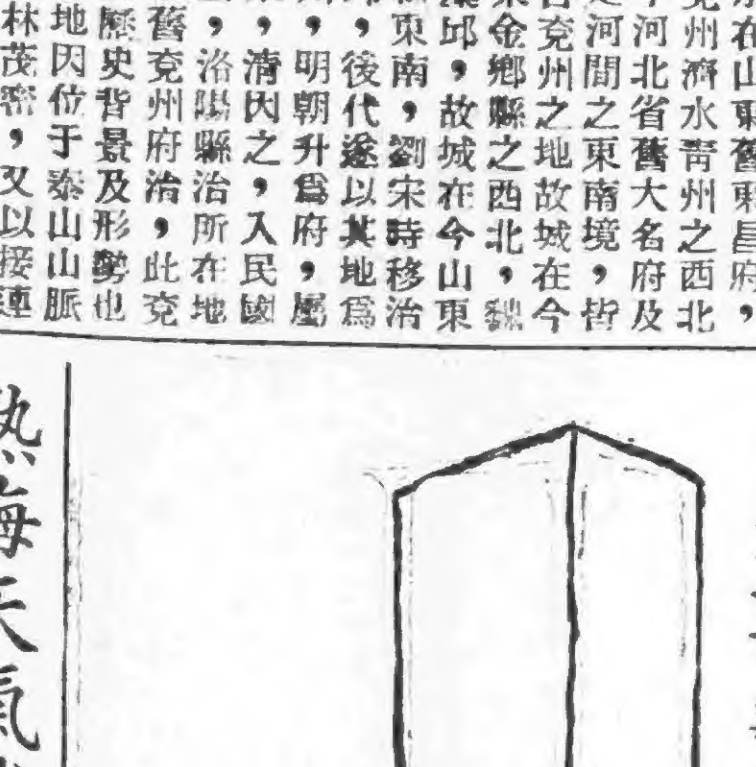 在山東舊東昌府，
州濟水青州之西北
河北省舊大名府及
河間之東南境，皆
兗州之地故城在今
金鄉縣之西北，魏
邱，故城在今山東
東南，劉宋時移治
，後代遂以其地爲
，明朝升爲府，屬
，清因之，入民國
，洛陽縣治所在地
舊兗州府治，此兗
歷史背景及形勢也
地因位于泰山山脈
林茂密，又以接連
熱海天氣